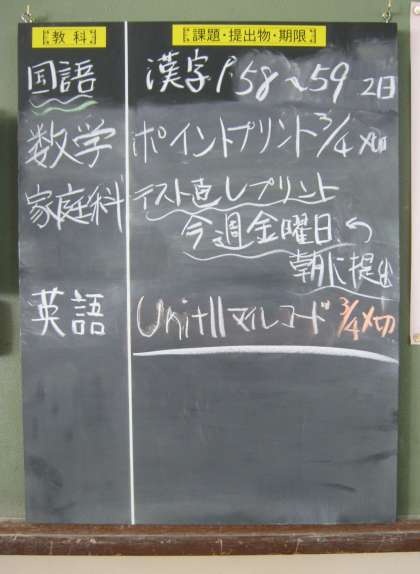 教科 課題・提出物・期限
国語 漢字 P58〜59 2日
数学 ポイントプリント 3/4 〆切
家庭科 テスト直しプリント
今週金曜日
朝に提出
英語 Unit11マイレコード 3/4 〆切